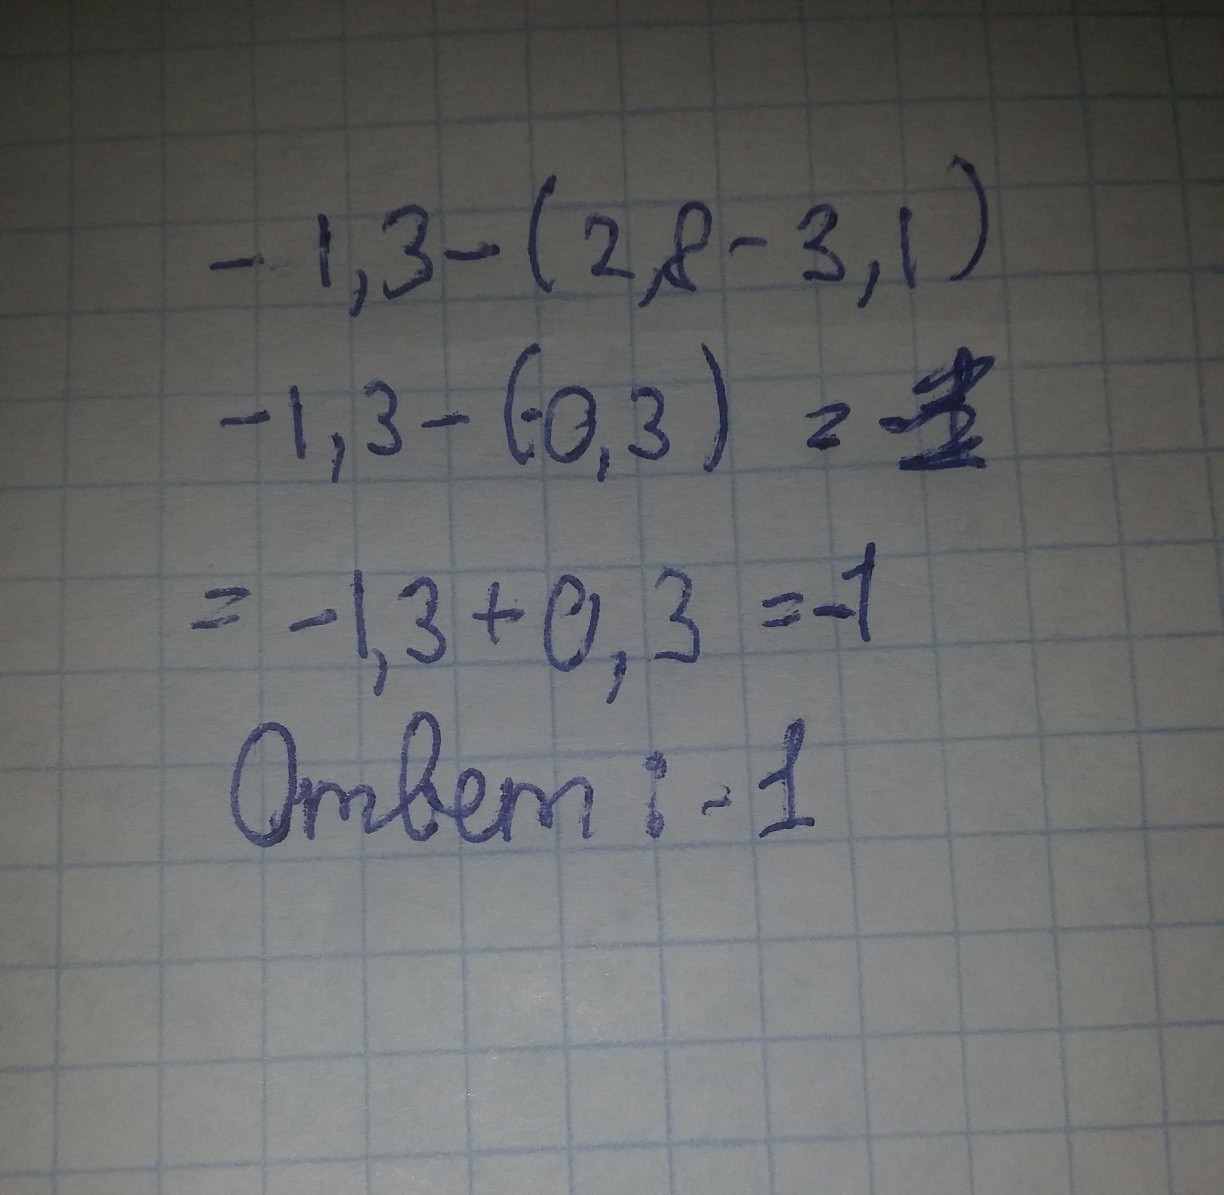 -1,3-(2,8-3,1)
-1,3-(-0,3) =
= -1,3+0,3 =-1
Ответ: -1